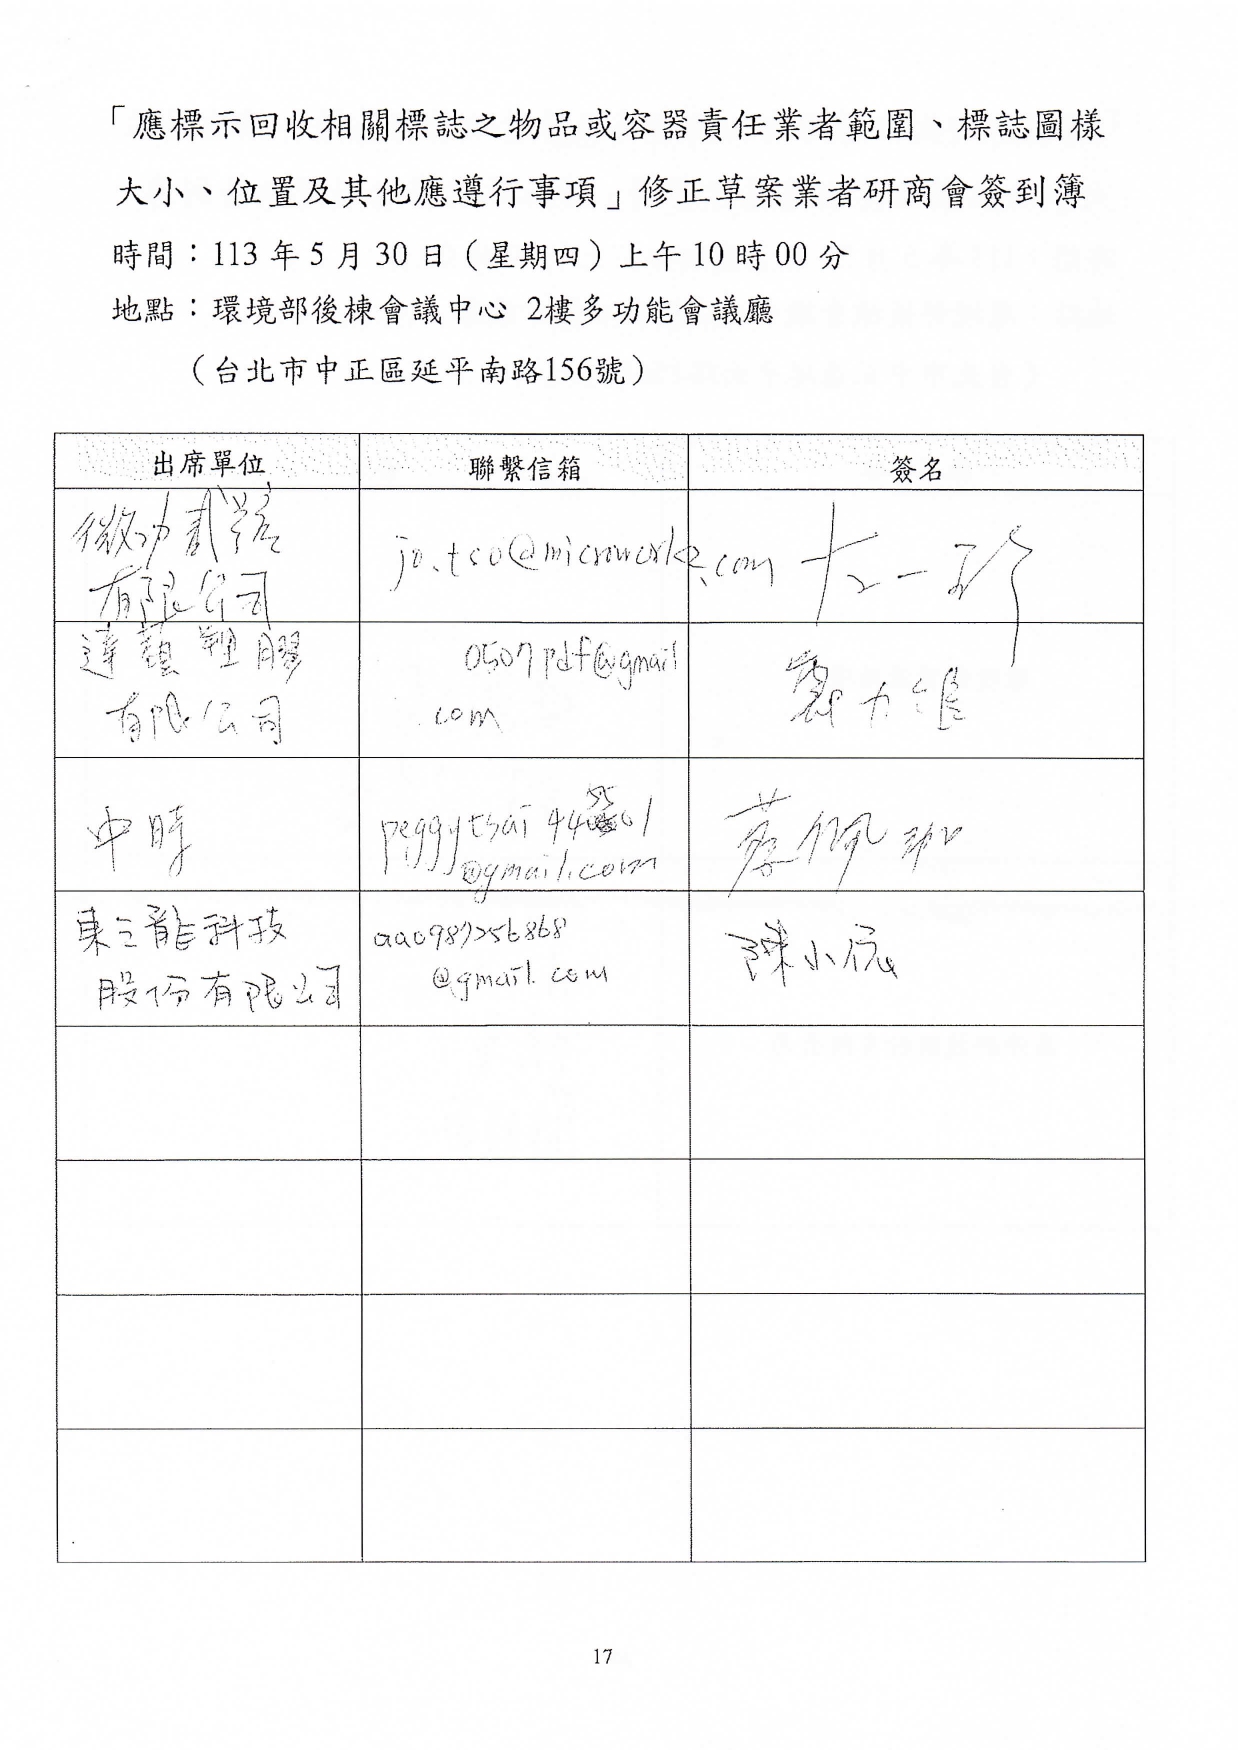 「應標示回收相關標誌之物品或容器責任業者範圍、標誌圖樣
大小、位置及其他應遵行事項」修正草案業者研商會簽到簿
時間：113 年 5 月 30 日（星期四）上午 10 時 00 分
地點：環境部後棟會議中心 2樓多功能會議廳
（台北市中正區延平南路156號）
出席單位 聯繫信箱 簽名
微功貳號
有限公司
jo.tso@microworkz.com
塑膠
有限公司
0507pdf@gmail
.com
中時
peggytsai
@gmail.com
蔡佩珈
東之龍科技
股份有限公司
@gmail.com
陳小
17